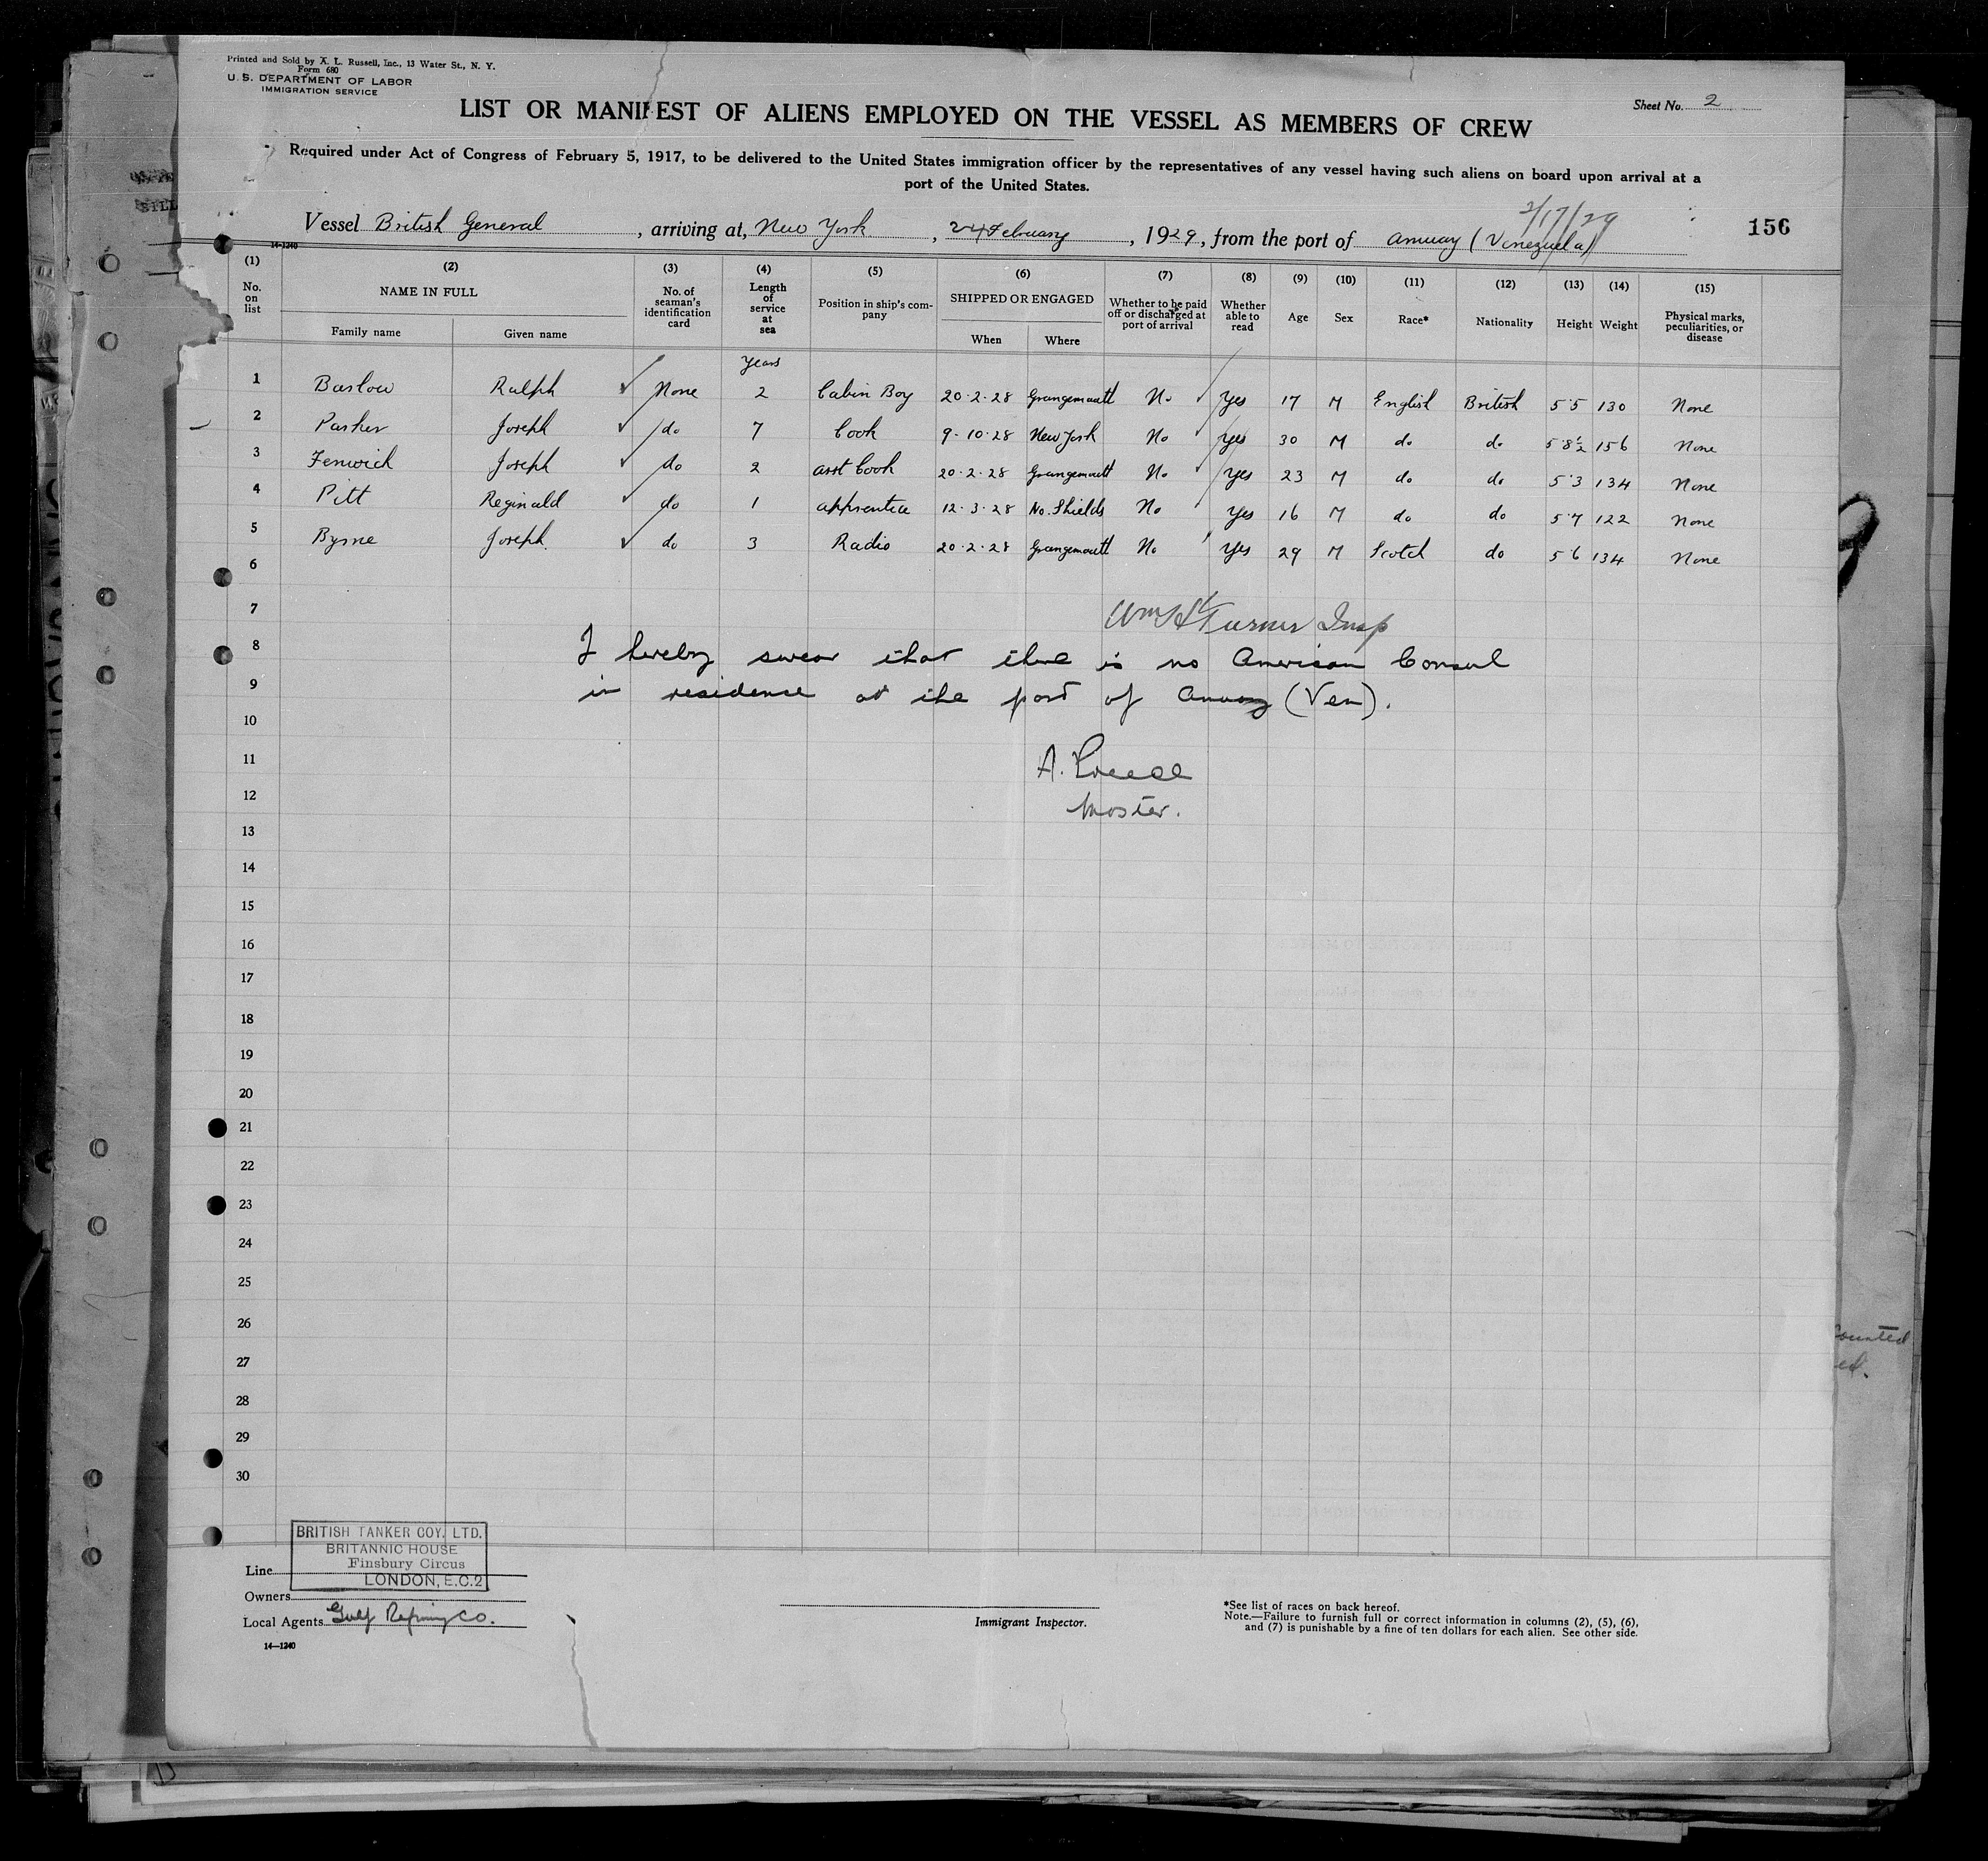 Printed and Sold by A. L. Russell, Inc., 13 Water St., N. Y.
Form 680
U. S. DEPARTMENT OF LABOR
IMMIGRATION SERVICE
Sheet No. 2
LIST OR MANIFEST OF ALIENS EMPLOYED ON THE VESSEL AS MEMBERS OF CREW
Required under Act of Congress of February 5, 1917, to be delivered to the United States immigration officer by the representatives of any vessel having such aliens on board upon arrival at a
port of the United States.
2/17/29
156
Vessel British General, arriving at, New York, 24 February, 1929, from the port of Amuay (Venezuela)
14-1240
(1) (2) (3) (4) (5) (6) (7) (8) (9) (10) (11) (12) (13) (14) (15)
No. on list
NAME IN FULL
Family name Given name
No. of seaman's identification card
Length of service at sea
Position in ship's company
SHIPPED OR ENGAGED
When Where
Whether to be paid off or discharged at port of arrival
Whether able to read
Age Sex Race* Nationality Height Weight
Physical marks, peculiarities, or disease
years
1 Barlow Ralph None 2 Cabin Boy 20·2·28 Grangemouth No Yes 17 M English British 5·5 130 None
2 Parker Joseph do 7 Cook 9·10·28 New York No Yes 30 M do do 5·8½ 156 None
3 Fenwick Joseph do 2 asst Cook 20·2·28 Grangemouth No Yes 23 M do do 5·3 134 None
4 Pitt Reginald do 1 apprentice 12·3·28 No. Shields No Yes 16 M do do 5·7 122 None
5 Byrne Joseph. do 3 Radio 20·2·28 Grangemouth No Yes 29 M Scotch do 5·6 134 None
6
7 Wm H Turner Insp
8 I hereby swear that there is no American Consul
9 in residence at the port of Amuay (Ven).
10
11 A.
12 Master.
13
14
15
16
17
18
19
20
21
22
23
24
25
26
27
28
29
30
BRITISH TANKER COY. LTD.
BRITANNIC HOUSE
Finsbury Circus
LONDON, E.C.2
Line
Owners
Local Agents Gulf Refining Co.
14—1240
Immigrant Inspector.
*See list of races on back hereof.
Note.—Failure to furnish full or correct information in columns (2), (5), (6),
and (7) is punishable by a fine of ten dollars for each alien. See other side.